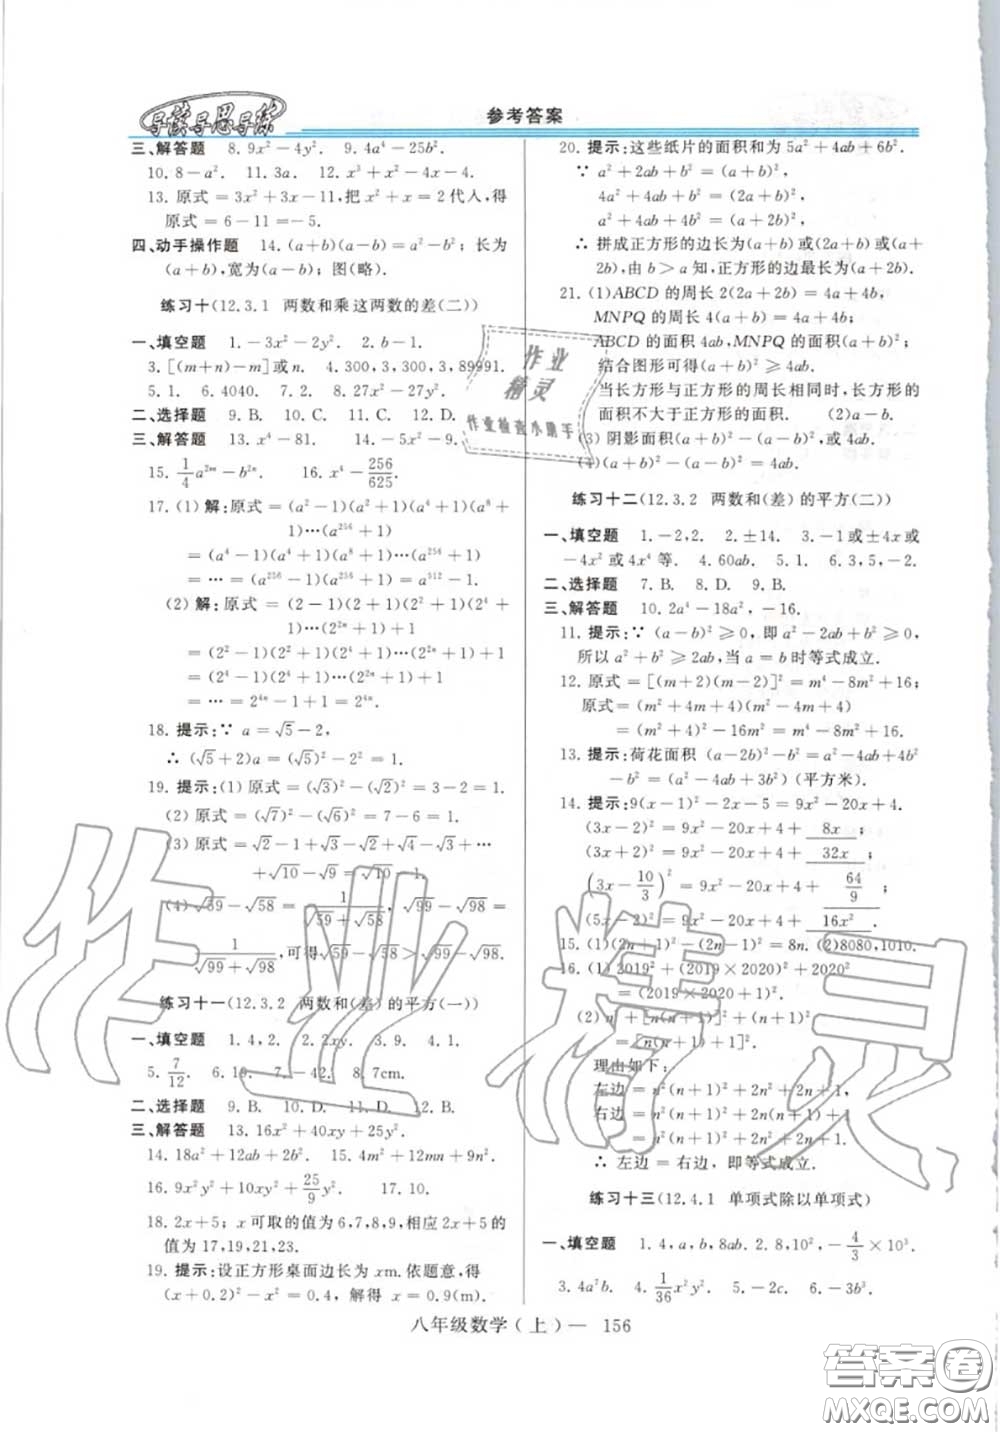 导读导思导练
参考答案
三、解答题 8. 9x²－4y². 9. 4a⁴－25b².
10. 8－a². 11. 3a. 12. x³＋x²－4x－4.
13. 原式＝3x²＋3x－11,把 x²＋x＝2代入,得
原式＝6－11＝－5.
四、动手操作题 14. (a＋b)(a－b)＝a²－b²；长为
(a＋b),宽为(a－b)；图(略).
练习十(12.3.1 两数和乘这两数的差(二))
一、填空题 1. －3x²－2y². 2. b－1.
3. [(m＋n)－m]或n. 4. 300,3,300,3,89991.
5. 1. 6. 4040. 7. 1. 8. 27x²－6y².
二、选择题 9. B. 10. C. 11. C. 12. D.
三、解答题 13. x⁴－81. 14. －5x²－9.
15. 1/4 a²ᵐ－b²ⁿ. 16. x⁴－256/625.
17. (1) 解:原式＝(a²－1)(a²＋1)(a⁴＋1)(a⁸＋
1)…(a²⁵⁶＋1)
＝(a⁴－1)(a⁴＋1)(a⁸＋1)…(a²⁵⁶＋1)
＝…＝(a²⁵⁶－1)(a²⁵⁶＋1)＝a⁵¹²－1.
(2) 解:原式＝(2－1)(2＋1)(2²＋1)(2⁴＋
1)…(2²ⁿ＋1)＋1
＝(2²－1)(2²＋1)(2⁴＋1)…(2²ⁿ＋1)＋1
＝(2⁴－1)(2⁴＋1)…(2²ⁿ＋1)＋1
＝…＝2⁴ⁿ－1＋1＝2⁴ⁿ.
18. 提示:∵ a＝√5－2,
∴ (√5＋2)a＝(√5)²－2²＝1.
19. 提示:(1) 原式＝(√3)²－(√2)²＝3－2＝1.
(2) 原式＝(√7)²－(√6)²＝7－6＝1.
(3) 原式＝√2－1＋√3－√2＋√4－√3＋…
＋√10－√9＝√10－1.
(4) √59－√58＝1/(√59＋√58), √99－√98＝
1/(√99＋√98),可得√59－√58＞√99－√98.
练习十一(12.3.2 两数和(差)的平方(一))
一、填空题 1. 4,2. 2. 2xy. 3. 9. 4. 1.
5. 7/12. 6. 19. 7. －42. 8. 7cm.
二、选择题 9. B. 10. D. 11. D. 12. B.
三、解答题 13. 16x²＋40xy＋25y².
14. 18a²＋12ab＋2b². 15. 4m²＋9n².
16. 9x²y²＋10xy²＋25/9 y². 17. 10.
18. 2x＋5；x 可取的值为 6,7,8,9,相应 2x＋5 的
值为 17,19,21,23.
19. 提示:设正方形桌面边长为 xm.依题意,得
(x＋0.2)²－x²＝0.4,解得 x＝0.9(m).
20. 提示:这些纸片的面积和为 5a²＋4ab＋6b².
∵ a²＋2ab＋b²＝(a＋b)²,
4a²＋4ab＋b²＝(2a＋b)²,
a²＋4ab＋4b²＝(a＋2b)²,
∴ 拼成正方形的边长为(a＋b)或(2a＋b)或(a＋
2b),由 b＞a 知,正方形的边最长为(a＋2b).
21. (1)ABCD 的周长 2(2a＋2b)＝4a＋4b,
MNPQ 的周长 4(a＋b)＝4a＋4b；
ABCD 的面积 4ab,MNPQ 的面积(a＋b)².
结合图形可得(a＋b)²≥4ab.
当长方形与正方形的周长相同时,长方形的
面积不大于正方形的面积. (2)a－b.
(3) 阴影面积(a－b)²,或(a＋b)²－4ab.
(4)(a－b)²＝(a＋b)²－4ab.
练习十二(12.3.2 两数和(差)的平方(二))
一、填空题 1. －2,2. 2. ±14. 3. －1或±4x或
－4x²或4x⁴等. 4. 60ab. 5. 1. 6. 3,5,－2.
二、选择题 7. B. 8. D. 9. B.
三、解答题 10. 2a⁴－18a²,－16.
11. 提示:∵ (a－b)²≥0,即 a²－2ab＋b²≥0,
所以 a²＋b²≥2ab,当 a＝b时等式成立.
12. 原式＝[(m＋2)(m－2)]²＝m⁴－8m²＋16；
原式＝(m²＋4m＋4)(m²－4m＋4)
＝(m²＋4)²－16m²＝m⁴－8m²＋16.
13. 提示:荷花面积 (a－2b)²－b²＝a²－4ab＋4b²
－b²＝(a²－4ab＋3b²)(平方米).
14. 提示:9(x－1)²－2x－5＝9x²－20x＋4.
(3x－2)²＝9x²－20x＋4＋ 8x ；
(3x＋2)²＝9x²－20x＋4＋ 32x ；
(3x－10/3)²＝9x²－20x＋4＋ 64/9 ；
(5x－2)²＝9x²－20x＋4＋ 16x² .
15. (1)(2n＋1)²－(2n－1)²＝8n. (2)8080,1010.
16. (1) 2019²＋(2019×2020)²＋2020²
＝(2019×2020＋1)².
(2) n²＋[n(n＋1)]²＋(n＋1)²
＝[n(n＋1)＋1]².
理由如下:
左边＝n²(n＋1)²＋2n²＋2n＋1,
右边＝n²(n＋1)²＋2n²＋2n＋1.
∴ 左边＝右边,即等式成立.
练习十三(12.4.1 单项式除以单项式)
一、填空题 1. 4,a,b,8ab. 2. 8,10²,－4/3×10³.
3. 4a²b. 4. 1/36 x²y². 5. －2c. 6. －3b³.
八年级数学(上)— 156
作业精灵
作业检查小助手
作业精灵
答案圈
MXQE.COM